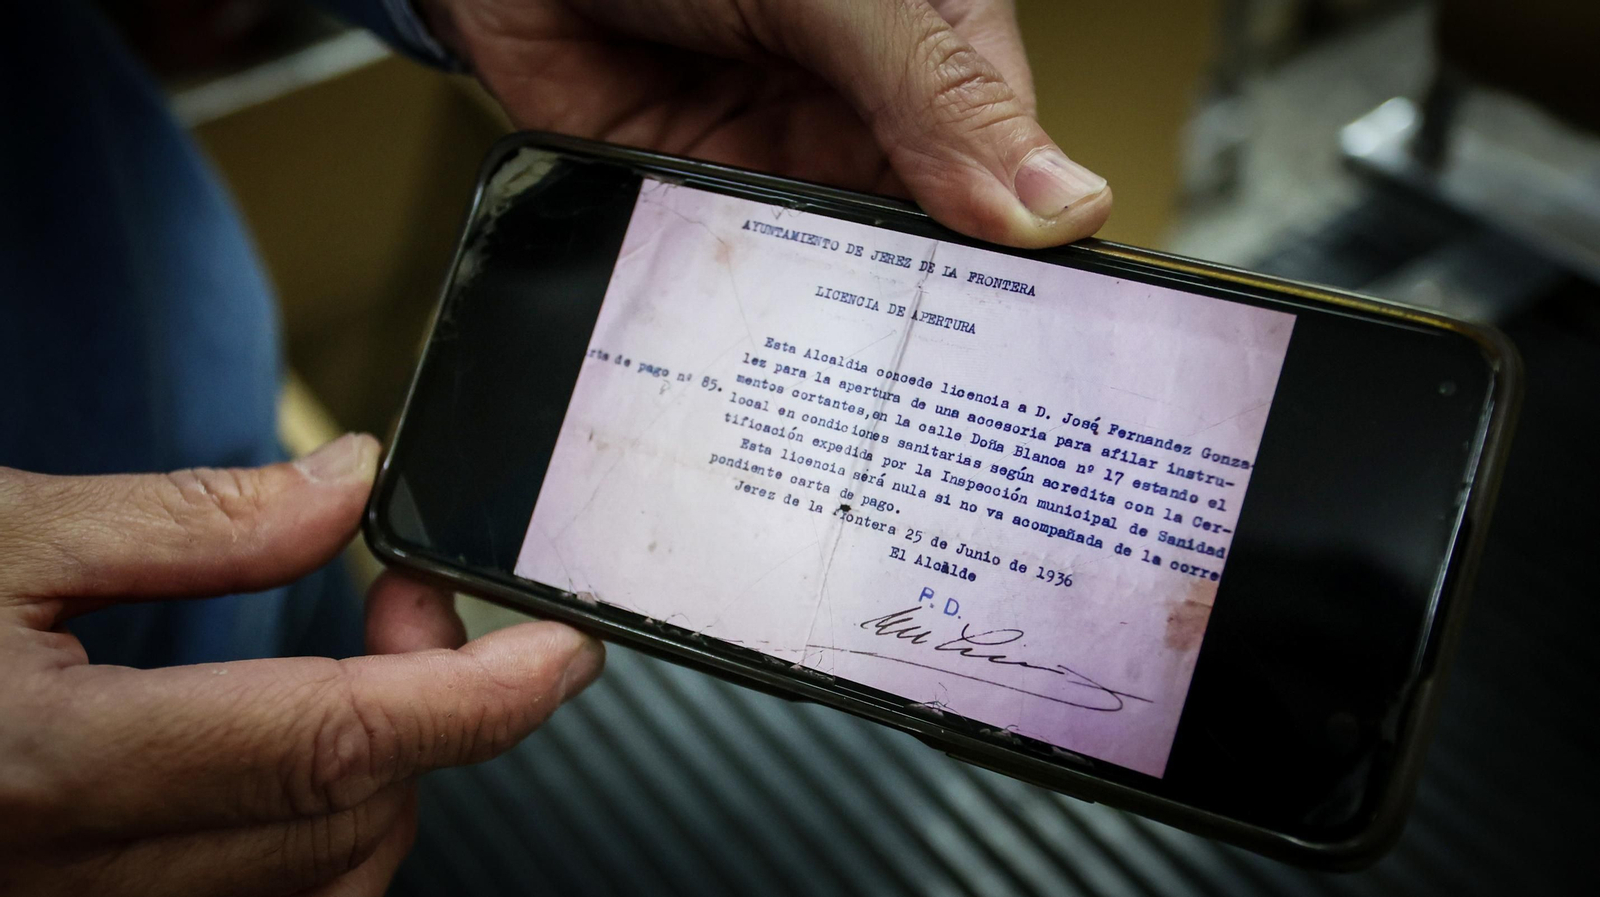 AYUNTAMIENTO DE JEREZ DE LA FRONTERA
LICENCIA DE APERTURA
Esta Alcaldia concede licencia a D. José Fernandez Gonza-
lez para la apertura de una accesoria para afilar instru-
rta de pago nº 85. mentos cortantes,en la calle Doña Blanca nº 17 estando el
local en condiciones sanitarias según acredita con la Cer-
tificación expedida por la Inspección municipal de Sanidad
Esta licencia será nula si no va acompañada de la corre
pondiente carta de pago.
Jerez de la frontera 25 de Junio de 1936
El Alcalde
P. D.